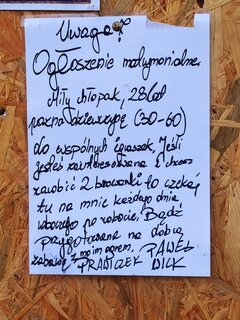 Uwaga!
Ogłoszenie matrymonialne
Miły chłopak, 28 lat
pozna dziewczynę (30-60)
do wspólnych igraszek. Jeśli
jesteś zainteresowana i chcesz
zarobić 2 browarki to czekaj
tu na mnie każdego dnia
wieczorem po robocie. Bądź
przygotowana na dobrą
zabawę z moim ogrem. PAWEŁ
PRAWICZEK DICK